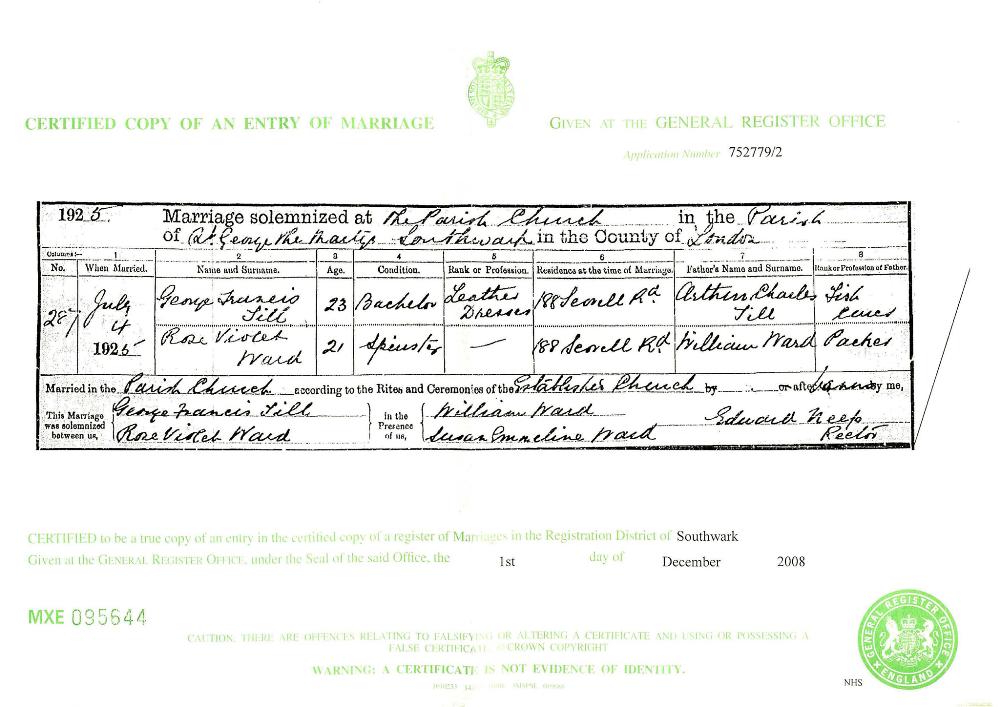 CERTIFIED COPY OF AN ENTRY OF MARRIAGE
GIVEN AT THE GENERAL REGISTER OFFICE
Application Number 752779/2
1925. Marriage solemnized at The Parish Church in the Parish
of St. George the Martyr Southwark in the County of London
Columns:— 1 2 3 4 5 6 7 8
No. When Married. Name and Surname. Age. Condition. Rank or Profession. Residence at the time of Marriage. Father's Name and Surname. Rank or Profession of Father.
287 July 4 1925 George Francis Till 23 Bachelor Leather Dresser 188 Scovell Rd Arthur Charles Till Fish
Rose Violet Ward 21 Spinster — 188 Scovell Rd William Ward Packer
Married in the Parish Church according to the Rites and Ceremonies of the Established Church by or after Banns by me,
This Marriage was solemnized between us, George Francis Till Rose Violet Ward In the Presence of us, William Ward Susan Emmeline Ward Edward Neep Rector
CERTIFIED to be a true copy of an entry in the certified copy of a register of Marriages in the Registration District of Southwark
Given at the GENERAL REGISTER OFFICE, under the Seal of the said Office, the 1st day of December 2008
MXE 095644
CAUTION: THERE ARE OFFENCES RELATING TO FALSIFYING OR ALTERING A CERTIFICATE AND USING OR POSSESSING A
FALSE CERTIFICATE. ©CROWN COPYRIGHT
WARNING: A CERTIFICATE IS NOT EVIDENCE OF IDENTITY.
GENERAL REGISTER OFFICE
ENGLAND
NHS